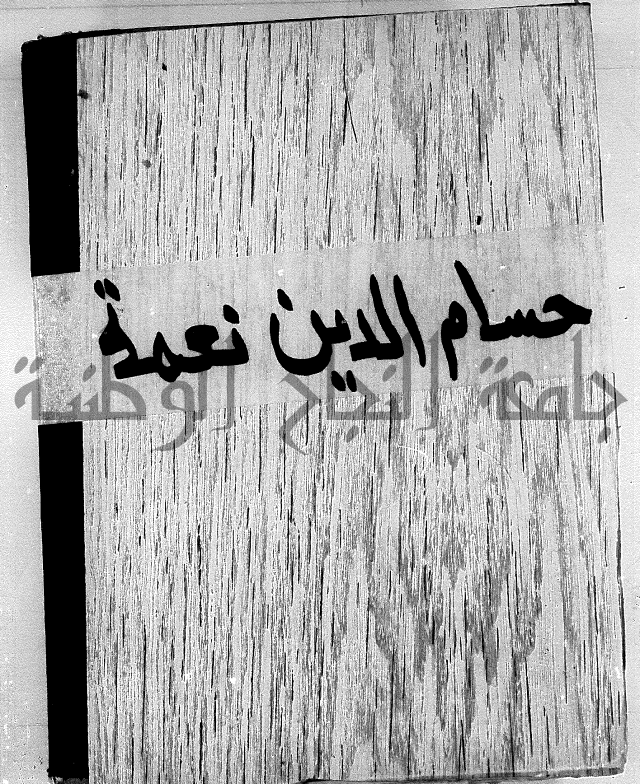 حسام الدين نعمة
جامعة النجاح الوطنية